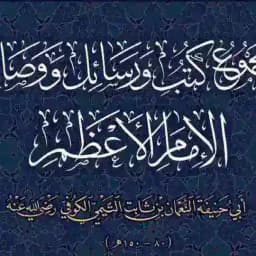 مجموع كتب ورسائل ووصايا
الإمام الأعظم
أبي حنيفة النعمان بن ثابت التيمي الكوفي رضي الله عنه
(٨٠ - ١٥٠هـ)